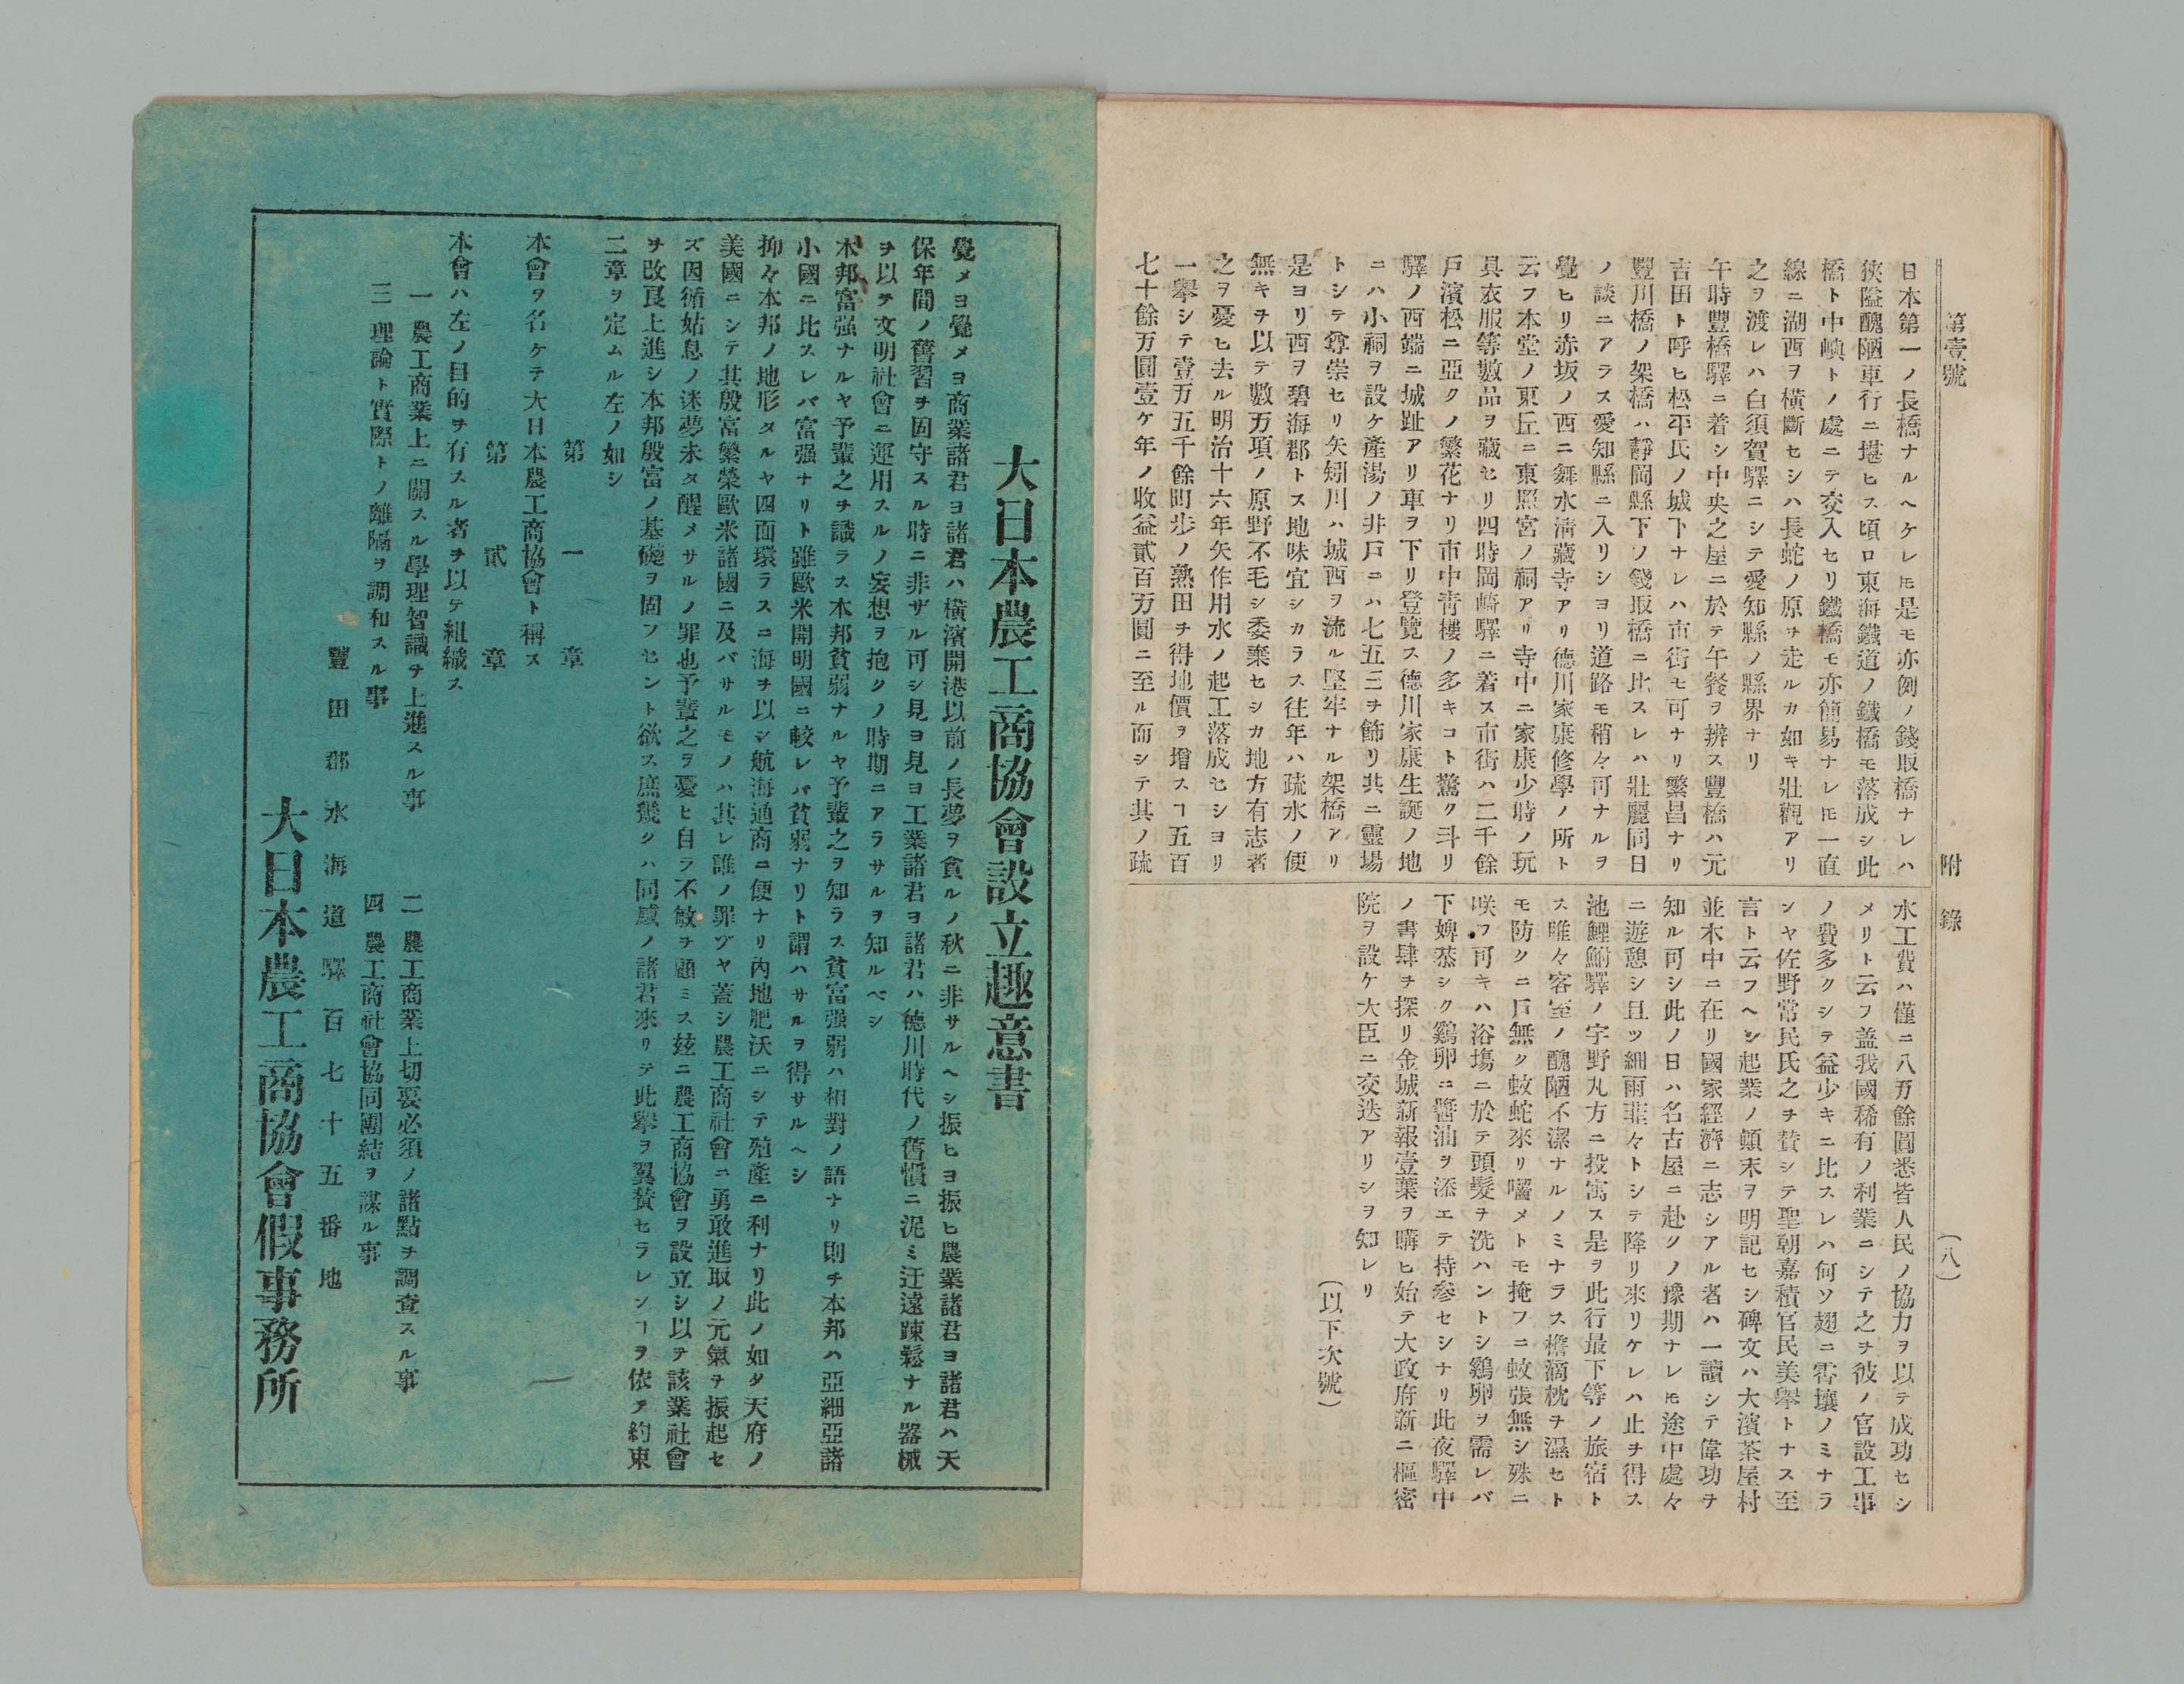 第壹號
附錄
(八)
日本第一ノ長橋ナルヘケレ𪜈是モ亦例ノ錢取橋ナレハ
狹隘醜陋車行ニ堪ヒス頃ロ東海鐵道ノ鐵橋モ落成シ此
橋ト中㠀トノ處ニテ交入セリ鐵橋モ亦簡易ナレ𪜈一直
線ニ湖西ヲ横斷セシハ長蛇ノ原ヲ走ルカ如キ壯觀アリ
之ヲ渡レハ白須賀驛ニシテ愛知縣ノ縣界ナリ
午時豐橋驛ニ着シ中央之屋ニ於テ午餐ヲ辨ス豐橋ハ元
吉田ト呼ヒ松平氏ノ城下ナレハ市街モ可ナリ繁昌ナリ
豐川橋ノ架橋ハ靜岡縣下ノ錢取橋ニ比スレハ壯麗同日
ノ談ニアラス愛知縣ニ入リショリ道路モ稍々可ナルヲ
覺ヒリ赤坂ノ西ニ舞水淸藏寺アリ德川家康修學ノ所ト
云フ本堂ノ東丘ニ東照宮ノ祠アリ寺中ニ家康少時ノ玩
具衣服等數品ヲ藏セリ四時岡崎驛ニ着ス市街ハ二千餘
戸濱松ニ亞クノ繁花ナリ市中靑樓ノ多キコト驚ク斗リ
驛ノ西端ニ城趾アリ車ヲ下リ登覽ス德川家康生誕ノ地
ニハ小祠ヲ設ケ產湯ノ井戸ニハ七五三ヲ飾リ共ニ靈場
トシテ尊崇セリ矢矧川ハ城西ヲ流ル堅牢ナル架橋アリ
是ヨリ西ヲ碧海郡トス地味宜シカラス往年ハ疏水ノ便
無キヲ以テ數万項ノ原野不毛シ委棄セシカ地方有志者
之ヲ憂ヒ去ル明治十六年矢作用水ノ起工落成セショリ
一擧シテ壹万五千餘町步ノ熟田ヲ得地價ヲ增スヿ五百
七十餘万圓壹ケ年ノ收益貳百万圓ニ至ル而シテ其ノ疏
水工費ハ僅ニ八万餘圓悉皆人民ノ協力ヲ以テ成功セシ
メリト云フ蓋我國稀有ノ利業ニシテ之ヲ彼ノ官設工事
ノ費多クシテ益少キニ比スレハ何ソ翅ニ霄壤ノミナラ
ンヤ佐野常民氏之ヲ賛シテ聖朝嘉積官民美擧トナス至
言ト云フヘシ起業ノ顚末ヲ明記セシ碑文ハ大濱茶屋村
並木中ニ在リ國家經濟ニ志シアル者ハ一讀シテ偉功ヲ
知ル可シ此ノ日ハ名古屋ニ赴クノ豫期ナレ𪜈途中處々
ニ遊憩シ且ツ細雨霏々トシテ降リ來リケレハ止ヲ得ス
池鯉鮒驛ノ字野丸方ニ投寓ス是ヲ此行最下等ノ旅宿ト
ス唯々客室ノ醜陋不潔ナルノミナラス檐滴枕ヲ濕セト
モ防クニ戸無ク蚊蛇來リ囓メトモ掩フニ蚊張無シ殊ニ
咲フ可キハ浴塲ニ於テ頭髮ヲ洗ハントシ鷄卵ヲ需レバ
下婢恭シク鷄卵ニ醬油ヲ添エテ持參セシナリ此夜驛中
ノ書肆ヲ探リ金城新報壹葉ヲ購ヒ始テ大政府新ニ樞密
院ヲ設ケ大臣ニ交迭アリシヲ知レリ
(以下次號)
大日本農工商協會設立趣意書
覺メヨ覺メヨ商業諸君ヨ諸君ハ横濱開港以前ノ長夢ヲ貪ルノ秋ニ非サルヘシ振ヒヨ振ヒ農業諸君ヨ諸君ハ天
保年間ノ舊習ヲ固守スル時ニ非ザル可シ見ヨ見ヨ工業諸君ヨ諸君ハ德川時代ノ舊慣ニ泥ミ迂遠踈鬆ナル器械
ヲ以テ文明社會ニ運用スルノ妄想ヲ抱クノ時期ニアラサルヲ知ルベシ
本邦富强ナルヤ予輩之ヲ識ラス本邦貧弱ナルヤ予輩之ヲ知ラス貧富强弱ハ相對ノ語ナリ則チ本邦ハ亞細亞諸
小國ニ比スレバ富强ナリト雖歐米開明國ニ較レバ貧弱ナリト謂ハサルヲ得サルヘシ
抑々本邦ノ地形タルヤ四面環ラスニ海ヲ以シ航海通商ニ便ナリ內地肥沃ニシテ殖產ニ利ナリ此ノ如タ天府ノ
美國ニシテ其殷富繁榮歐米諸國ニ及バサルモノハ其レ誰ノ罪ゾヤ蓋シ農工商社會ニ勇敢進取ノ元氣ヲ振起セ
ズ因循姑息ノ迷夢未タ醒メサルノ罪也予輩之ヲ憂ヒ自ラ不敏ヲ顧ミス玆ニ農工商協會ヲ設立シ以テ該業社會
ヲ改良上進シ本邦殷富ノ基礎ヲ固フセント欲ス庶幾クハ同感ノ諸君來リテ此擧ヲ翼賛セラレンヿヲ依テ約束
二章ヲ定ムル左ノ如シ
第一章
本會ヲ名ケテ大日本農工商協會ト稱ス
第貳章
本會ハ左ノ目的ヲ有スル者ヲ以テ組織ス
一 農工商業上ニ關スル學理智識ヲ上進スル事
二 農工商業上切要必須ノ諸點ヲ調査スル事
三 理論ト實際トノ離隔ヲ調和スル事
四 農工商社會協同團結ヲ謀ル事
豐田郡水海道驛百七十五番地
大日本農工商協會假事務所